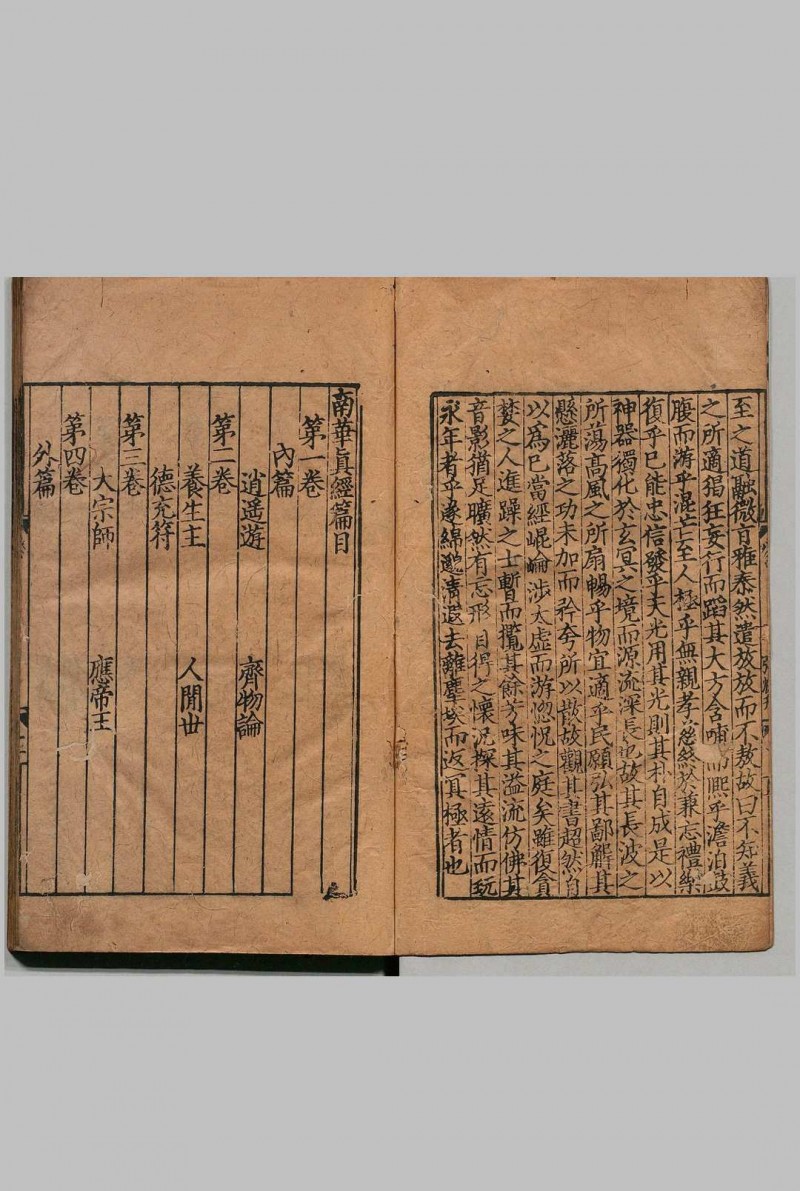 至之道融微旨雅泰然遣放放而不敖故曰不知義
之所適猖狂妄行而蹈其大方含哺而熙乎澹泊鼓
腹而游乎混芒至人極乎無親孝慈終於兼忘禮樂
復乎已能忠信發乎天光用其光則其朴自成是以
神器獨化於玄冥之境而源流深長也故其長波之
所蕩高風之所扇暢乎物宜適乎民願弘其鄙解其
懸灑落之功未加而矜夸所以散故觀其書超然自
以為已當經崐崘涉太虛而游惚怳之庭矣雖復貪
婪之人進躁之士暫而攬其餘芳味其溢流仿佛其
音影猶足曠然有忘形自得之懷況探其遠情而玩
永年者乎遂綿邈清遐去離塵埃而返冥極者也
南華眞經篇目
第一卷
內篇
逍遥遊 齊物論
第二卷
養生主 人閒世
德充符
第三卷
大宗師 應帝王
第四卷
外篇